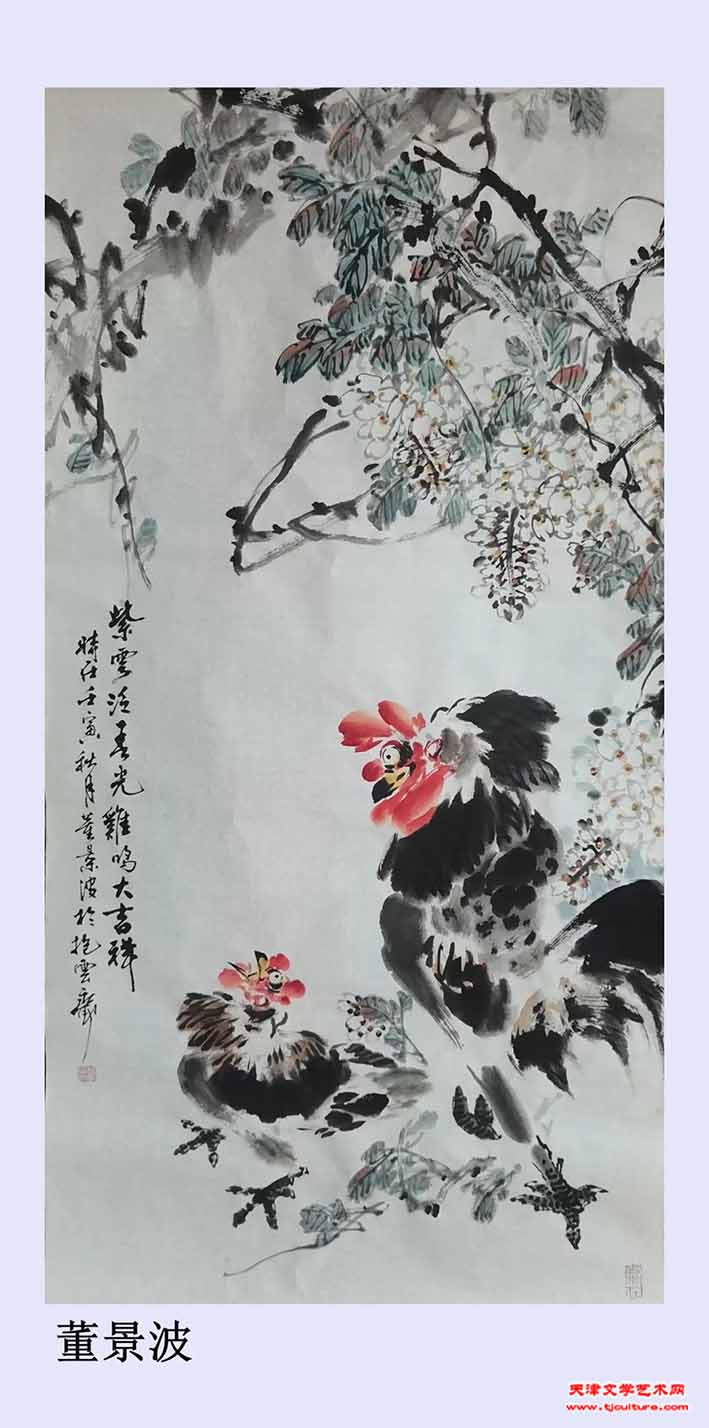 紫雲泛春光雞鳴大吉祥
時在壬寅秋月董景波於抱雲齋
董景波
天津文学艺术网
www.tjculture.com